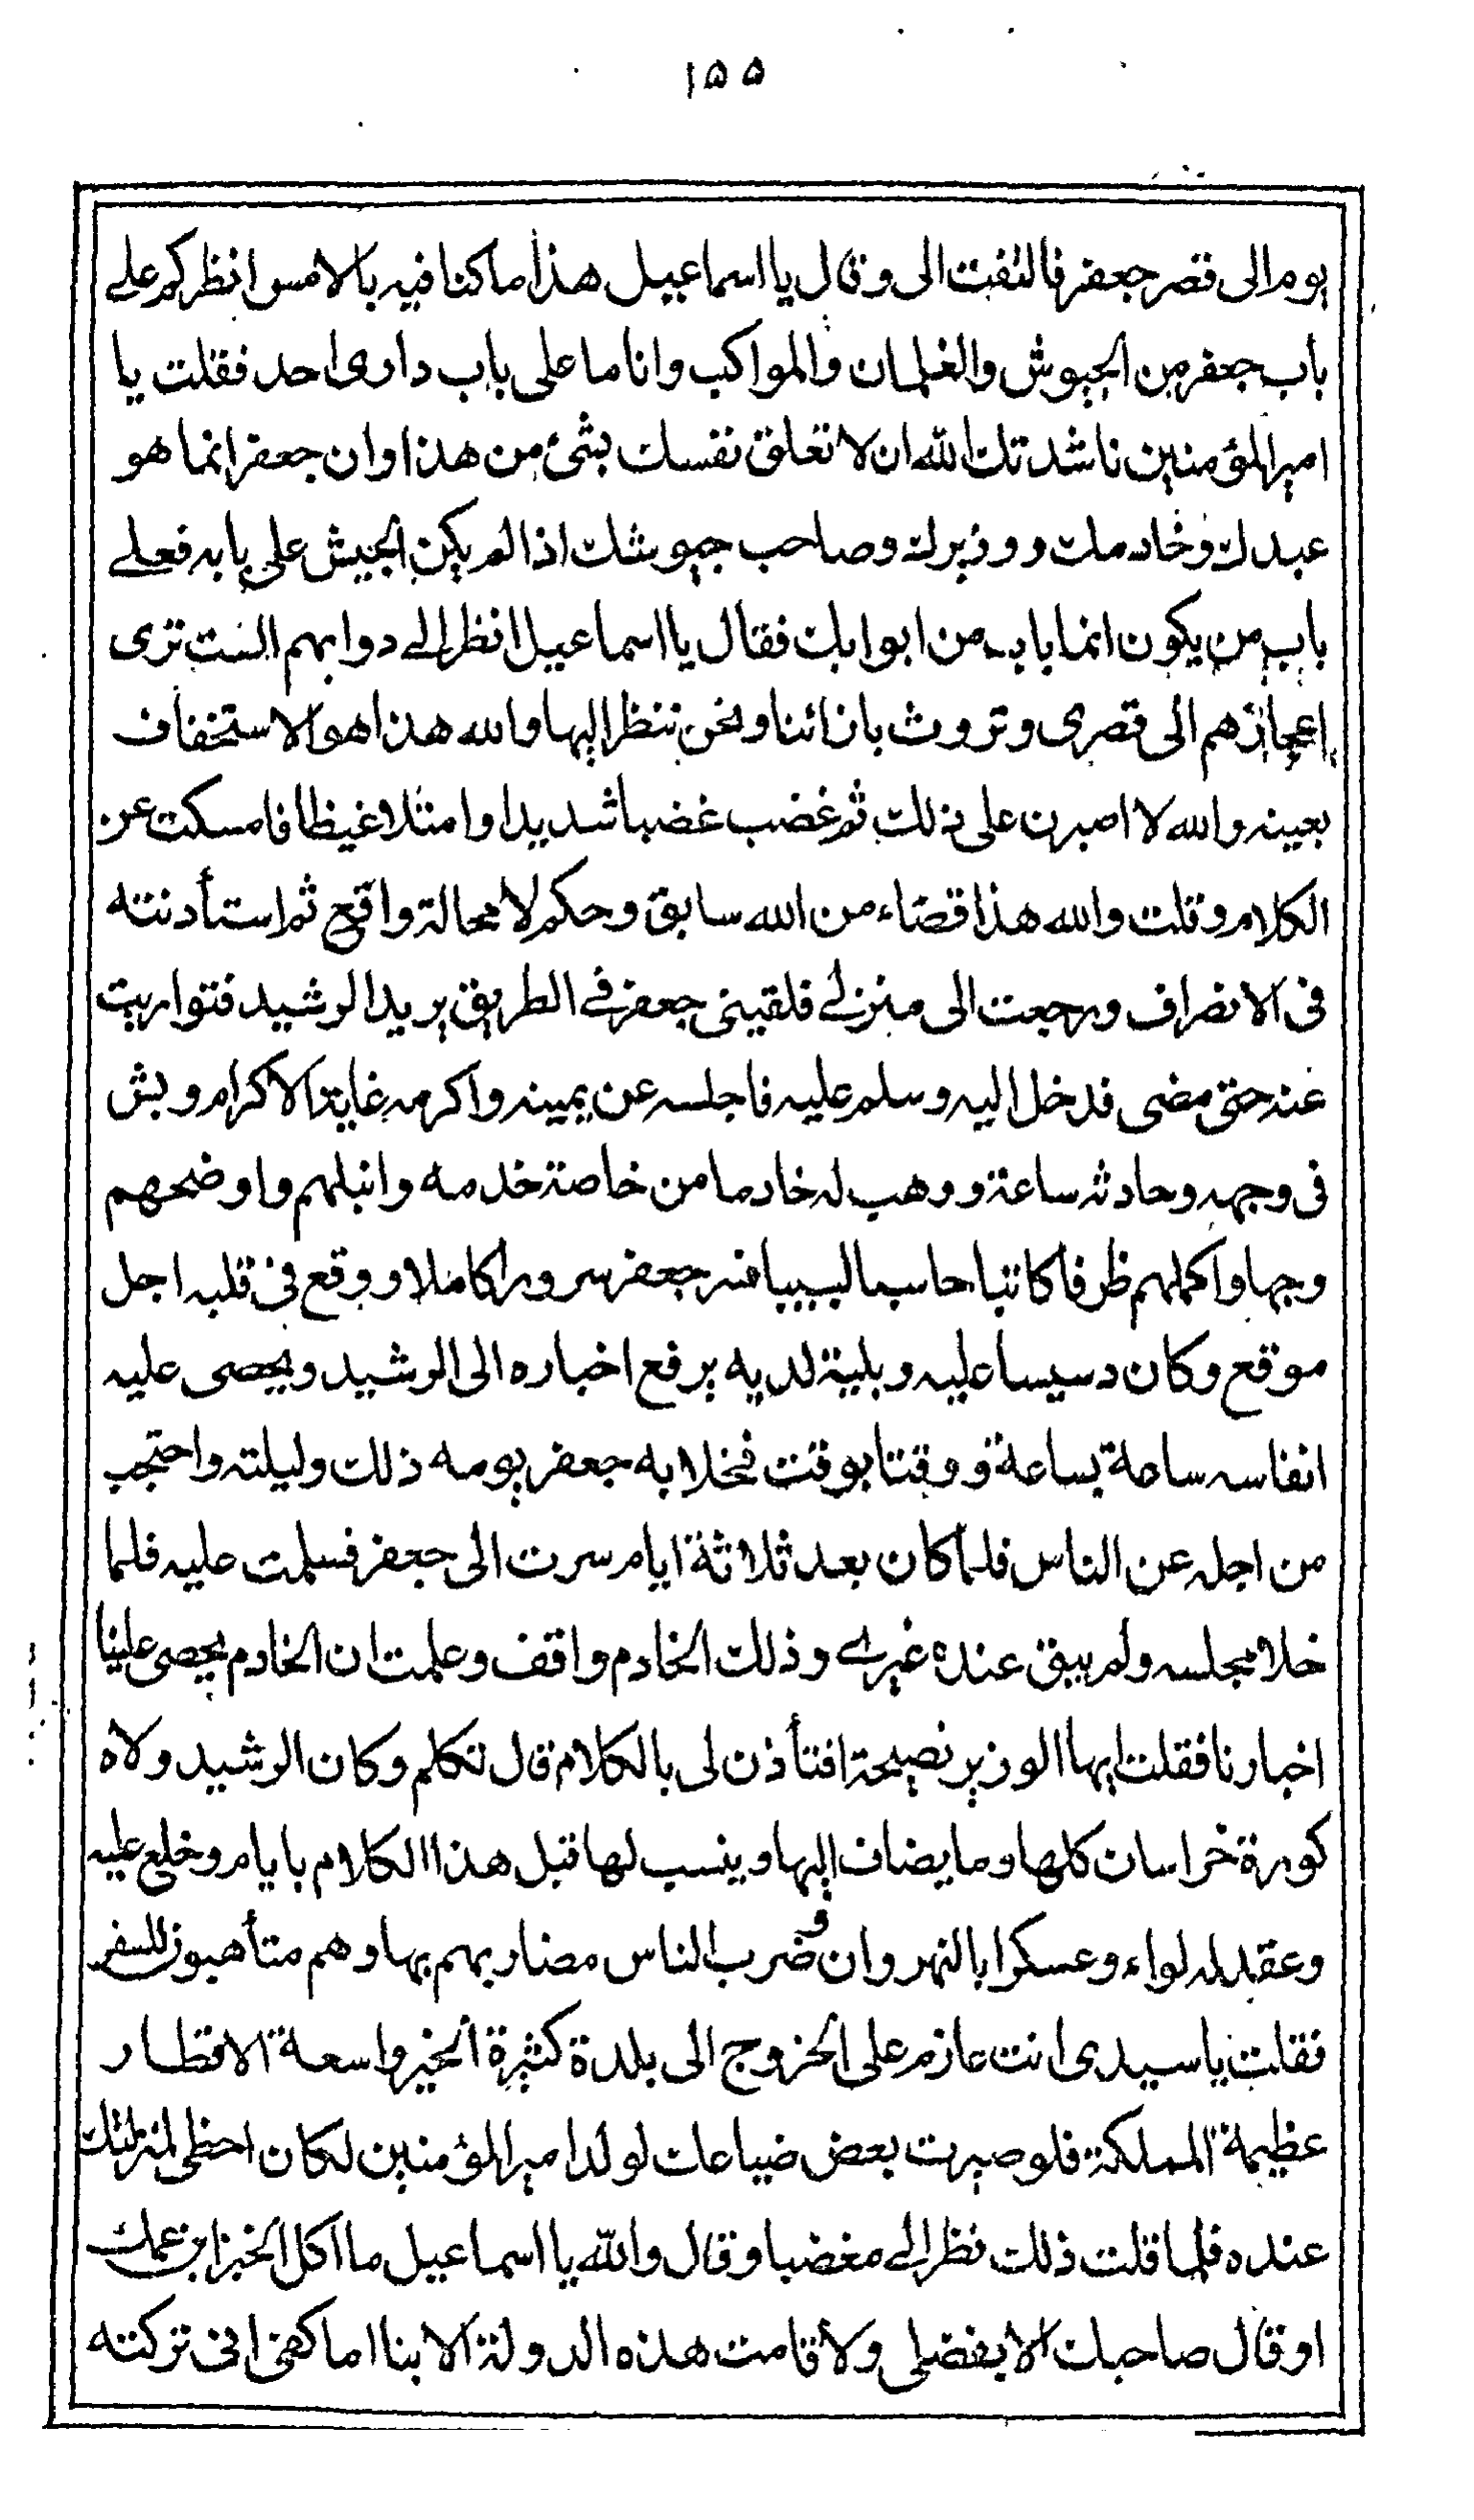 ١٥٥
يوم الى قصر جعفر فالتفت الى وقال يا اسماعيل هذا ما كنا فيه بالامس انظر كم على
باب جعفر من الجيوش والغلمان والمواكب وانا ما على باب دارى احد فقلت يا
امير المؤمنين ناشدتك الله ان لا تعلق نفسك بشئ من هذا وان جعفر انما هو
عبدك وخادمك ووزيرك وصاحب جيوشك اذا لم يكن الجيش على بابه فعلى
باب من يكون انما بابه من ابوابك فقال يا اسماعيل انظر الى دوابهم الست ترى
اعجازهم الى قصرى وتروث بازائنا ونحن ننظر اليها والله هذا هو الاستخفاف
بعينه والله لا اصبرن على ذلك ثم غضب غضبا شديدا وامتلا غيظا فامسكت عن
الكلام وقلت والله هذا قضاء من الله سابق وحكم لا محالة واقع ثم استأذنته
فى الانصراف ورجعت الى منزلى فلقينى جعفر فى الطريق يريد الرشيد فتواريت
عنه حتى مضى فدخل اليه وسلم عليه فاجلسه عن يمينه واكرمه غاية الاكرام وبش
فى وجهه وحادثه ساعة ووهب له خادما من خاصة خدمه وانبلهم واوضحهم
وجها واكملهم ظرفا كاتبا حاسبا لبيبا فسر جعفر سرورا كاملا ووقع فى قلبه اجل
موقع وكان دسيسا عليه وبلية لديه يرفع اخباره الى الرشيد ويحصى عليه
انفاسه ساعة بساعة ووقتا بوقت فخلا به جعفر يومه ذلك وليلته واحتجب
من اجله عن الناس فلما كان بعد ثلاثة ايام سرت الى جعفر فسلمت عليه فلما
خلا مجلسه ولم يبق عنده غيرى وذلك الخادم واقف وعلمت ان الخادم يحصى علينا
اخبارنا فقلت ايها الوزير نصيحة افتأذن لى بالكلام قال تكلم وكان الرشيد ولاه
كورة خراسان كلها وما يضاف اليها وينسب لها قبل هذا الكلام بايام وخلع عليه
وعقد له لواء وعسكرا بالنهروان وضرب الناس مضاربهم بها وهم متأهبون للسفر
فقلت يا سيدى انت عازم على الخروج الى بلدة كثيرة الخير واسعة الاقطار
عظيمة المملكة فلو صيرت بعض ضياعك لولد امير المؤمنين لكان احظى لمنزلتك
عنده فلما قلت ذلك نظر الى مغضبا وقال والله يا اسماعيل ما اكل الخبز ابن عمك
او قال صاحبك الا بفضلى ولا قامت هذه الدولة الا بنا اما كفى انى تركته